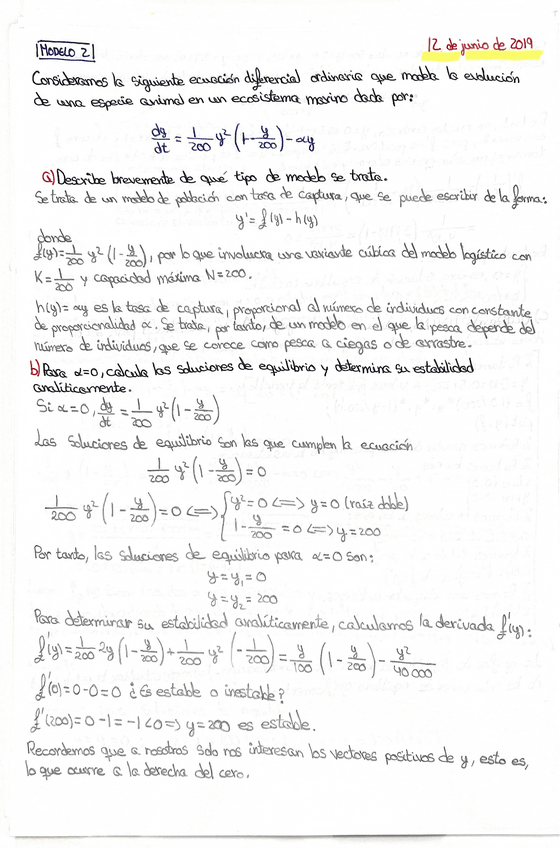 MODELO 2
12 de junio de 2019
Consideramos la siguiente ecuación diferencial ordinaria que modela la evolución
de una especie animal en un ecosistema marino dada por:
dy/dt = 1/200 y² (1 - y/200) - αy
a) Describe brevemente de qué tipo de modelo se trata.
Se trata de un modelo de población con tasa de captura, que se puede escribir de la forma:
y' = f(y) - h(y)
donde
f(y) = 1/200 y² (1 - y/200), por lo que involucra una variante cúbica del modelo logístico con
K = 1/200 y capacidad máxima N = 200.
h(y) = αy es la tasa de captura, proporcional al número de individuos con constante
de proporcionalidad α. Se trata, por tanto, de un modelo en el que la pesca depende del
número de individuos, que se conoce como pesca a ciegas o de arrastre.
b) Para α=0, calcula las soluciones de equilibrio y determina su estabilidad
analíticamente.
Si α=0, dy/dt = 1/200 y² (1 - y/200)
Las soluciones de equilibrio son las que cumplen la ecuación
1/200 y² (1 - y/200) = 0
1/200 y² (1 - y/200) = 0 <=> { y² = 0 <=> y = 0 (raíz doble)
1 - y/200 = 0 <=> y = 200
Por tanto, las soluciones de equilibrio para α=0 son:
y = y₁ = 0
y = y₂ = 200
Para determinar su estabilidad analíticamente, calculamos la derivada f'(y):
f'(y) = 1/200 2y (1 - y/200) + 1/200 y² (-1/200) = y/100 (1 - y/200) - y²/40000
f'(0) = 0 - 0 = 0 ¿Es estable o inestable?
f'(200) = 0 - 1 = -1 < 0 => y = 200 es estable.
Recordemos que a nosotros solo nos interesan los vectores positivos de y, esto es,
lo que ocurre a la derecha del cero.